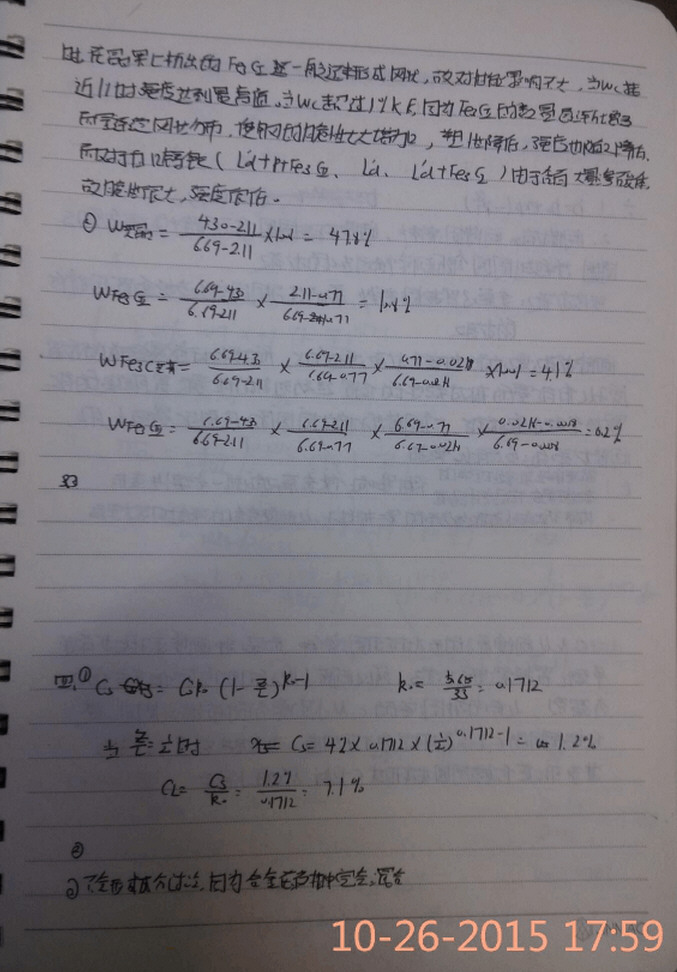 但在晶界上析出的Fe₃CⅡ一般还未形成网状,故对性能影响不大,当Wc接
近1%时强度达到最高值。当Wc超过1%后,因为Fe₃CⅡ的数量
网状分布,使钢的脆性大大增加,塑性降低,强度也随之降低。
而对于白口铸铁(L'd+P+Fe₃CⅡ、L'd、L'd+Fe₃CⅠ)由于含有大量
故脆性很大,强度很低。
= 4.30-2.11 / 6.69-2.11 ×100% = 47.8%
WFe₃CⅡ = 6.69-4.3 / 6.69-2.11 × 2.11-0.77 / 6.69-0.77
WFe₃C共析 = 6.69-4.3 / 6.69-2.11 × 6.69-2.11 / 6.69-0.77 × 0.77-0.0218 / 6.69-0.0218 ×100% = 4.1%
WFe₃CⅢ = 6.69-4.3 / 6.69-2.11 × 6.69-2.11 / 6.69-0.77 × 6.69-0.77 / 6.69-0.0218 × 0.0218-0.008 / 6.69-0.008 = 0.2%
33
四、① Cs = C₀k₀ (1- z/L)^k₀-1 k₀ = 5.65/33 = 0.1712
当 z/L = 1/2 时 Cs = 4.2 × 0.1712 × (1/2)^0.1712-1 = 1.2%
CL = Cs/k₀ = 1.2%/0.1712 = 7.1%
②
② 因为合金在液相中完全混合
10-26-2015 17:59